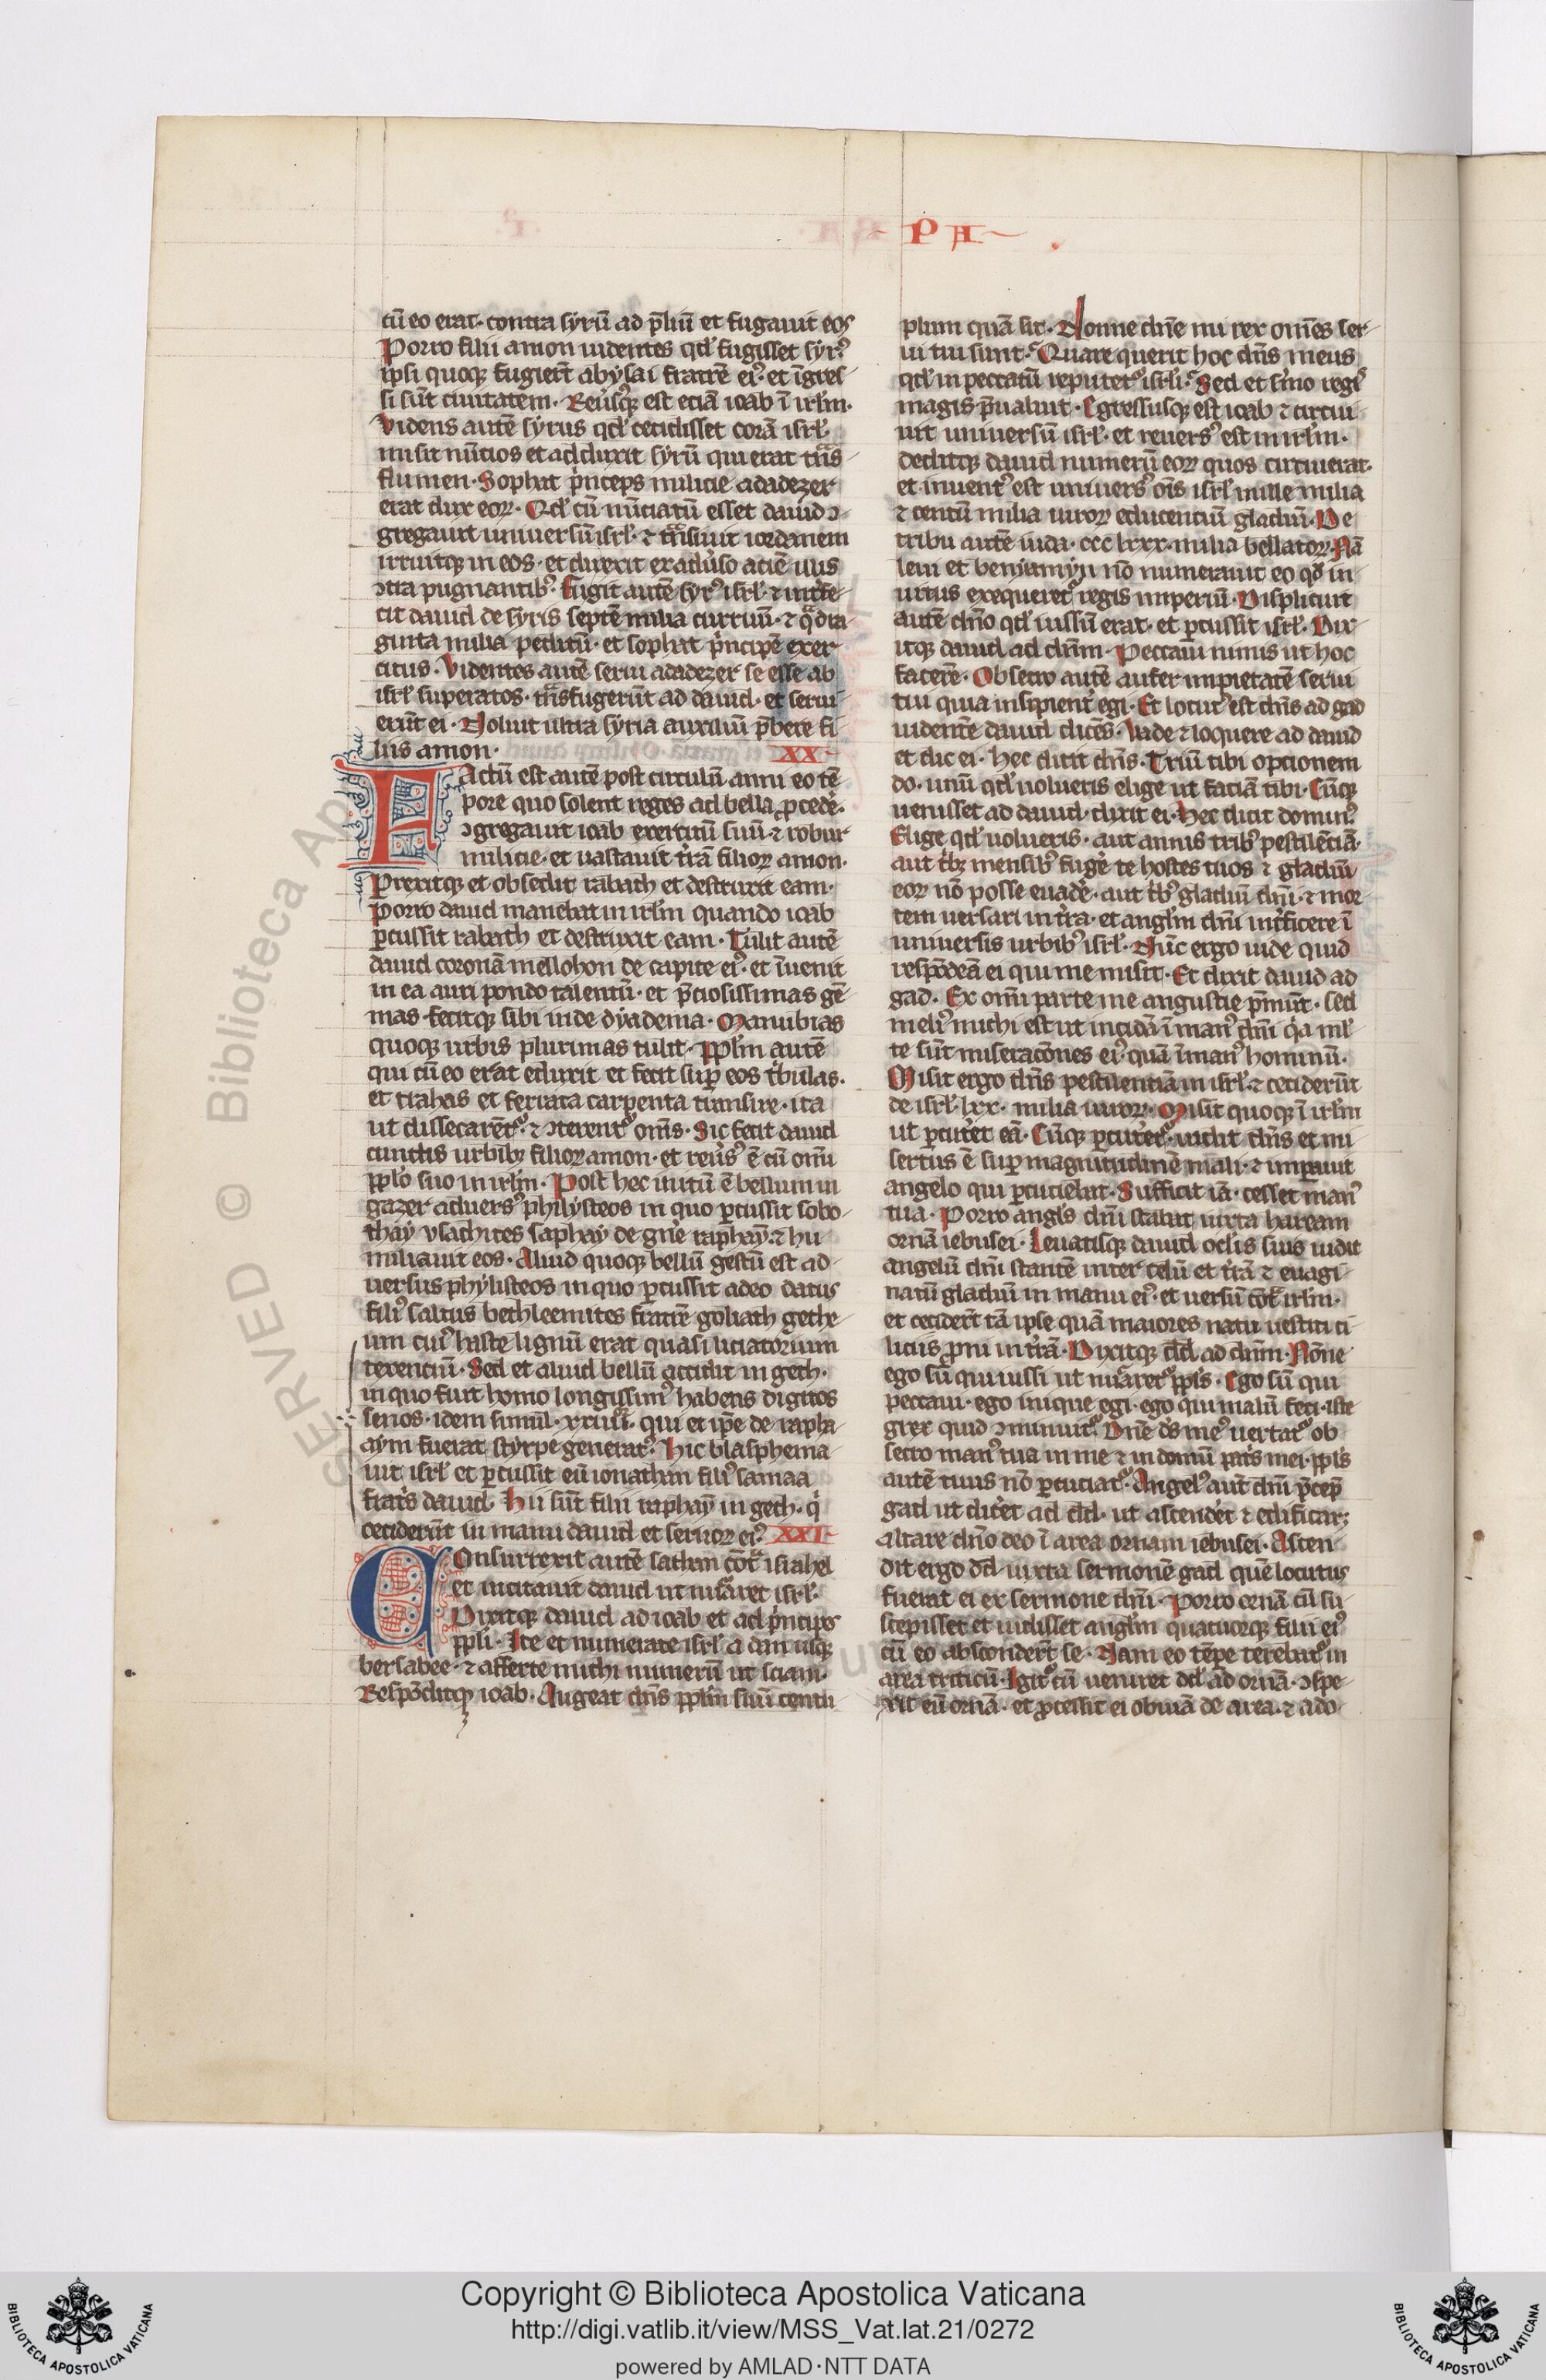 PA
cū eo erat · contra syrū ad p̄liū et fugauit eos
Porro filii amon uidentes qd̛ fugisset syr᷒
ipsi quoqꝫ fugier̄t abysai fratrē ei᷒ · et īgres-
si sūt ciuitatem · Reūsusqꝫ est eciā ioab ī irl̄m ·
Videns autē syrus qd̛ cecidisset corā isrl̛ ·
misit nūcios et adduxit syrū qui erat trās
flumen · Sophat p̍nceps milicie adadezer
erat dux eoꝝ · Qd̛ cū nūciatū esset dauid ↄ-
gregauit uniuersū isrl̛ · ⁊ trāsiuit iordanem
irruitqꝫ in eos · et direxit ex adu̍so aciē illis
ↄtra pugnantib᷒ · Fugit autē syr᷒ isrl̛ · ⁊ int̍fe-
cit dauid de syris septē milia curruū · ⁊ qᷓdra-
ginta milia peditū · et sophat p̍ncipē exer-
citus · Videntes autē serui adadezer se esse ab
isrl̛ superatos · trāsfugerūt ad dauid · et serui-
erūt ei · Noluit ultra syria auxiliū p̄bere fi-
liis amon · XX
Factū est autē post circulū anni eo tē-
pore quo solent reges ad bella ꝓcede̍ ·
ↄgregauit ioab exercitū suū · ⁊ robur
milicie · et uastauit t̍rā filioꝝ amon ·
Prexitqꝫ et obsedit rabath et destruxit eam ·
Porro dauid manebat in irl̄m quando ioab
ꝑcussit rabath et destruxit eam · Tulit autē
dauid coronā mellohon de capite ei᷒ · et īuenit
in ea auri pondo talentū · et p̄ciosissimas gē-
mas · fecitqꝫ sibi inde dyadema · Manubias
quoqꝫ urbis plurimas tulit · ppl̄m autē
qui cū eo erat eduxit et fecit suꝑ eos t̍bulas ·
et trahas et ferrata carpenta transire · ita
ut dissecarēt᷑ · ⁊ ↄterent᷑ om̄s · Sic fecit dauid
cunctis urbibꝫ filioꝝ amon · et reu̍s᷒ ē cū om̄i
ppl̄o suo in irl̄m · Post hec initū ē bellum in
gazer aduers᷒ philysteos in quo ꝑcussit sobo-
thay usachites saphay de gn̄e raphay · ⁊ hu
miliauit eos · Aliud quoqꝫ bellū gestū est ad-
uersus phylisteos in quo ꝑcussit adeo datus
fili᷒ saltus bethleemites fratrē goliath gethe-
um cui᷒ haste lignū erat quasi liciatorium
texenciū · Sed et aliud bellū accidit in geth ·
in quo fuit homo longissim᷒ habens digitos
senos · idem simul · xxiiii · qui et ip̄e de rapha-
aym fuerat styrpe generat᷒ · Hic blasphema-
uit isrl̛ et ꝑcussit eū ionathan fili᷒ samaa
frat̍s dauid · Hii sūt filii raphay in geth · q̍
ceciderūt in manu dauid et seruoꝝ ei᷒ · XXI
Consurrexit autē sathan cōt̍ israhel
et incitauit dauid ut nūaret isrl̛ ·
Dixitqꝫ dauid ad ioab et ad p̍ncipes
ppl̄i · Ite et numerate isrl̛ a dan usqꝫ
bersabee · ⁊ afferte michi numerū ut sciam ·
Respōditqꝫ ioab · Augeat dn̄s ppl̄m suū centu-
plum quā sit · Nonne dn̄e mi rex om̄es ser-
ui tui sunt · Quare querit hoc dn̄s meus
qd̛ in peccatū reputet᷑ isrl̄i · Sed et s̍mo regis
magis p̄ualuit · Egressusqꝫ est ioab ⁊ circui-
uit uniuersū isrl̛ · et reuers᷒ est in irl̄m ·
deditqꝫ dauid numerū eoꝝ quos circuierat ·
et inuent᷒ est uniuers᷒ om̄s isrl̛ mille milia
⁊ centū milia uiroꝝ educenciū gladiū · De
tribu autē iuda · cccc lxx · milia bellatoꝝ · Nā
leui et beniamyn nō numerauit eo qd̛ in-
uitus exequeret᷑ regis imperiū · Displicuit
autē dn̄o qd̛ iussū erat · et ꝑcussit isrl̛ · Dix-
itqꝫ dauid ad dn̄m · Peccaui nimis ut hoc
facerē · Obsecro autē aufer impietatē serui
tui quia insipient̍ egi · Et locut᷒ est dn̄s ad gad
uidentē dauid dicēs · Vade ⁊ loquere ad dauid
et dic ei · hec dicit dn̄s · Triū tibi opcionem
do · unū qd̛ uolueris elige ut faciā tibi · Cūqꝫ
uenisset ad dauid · dixit ei · Hec dicit domin᷒
Elige qd̛ uolueris · aut annis trib᷒ pestilēciā ·
aut t̍bꝫ mensib᷒ fuge̍ te hostes tuos ⁊ gladiū
eoꝝ nō posse euade̍ · aut t̍b᷒ gladiū dn̄i · ⁊ mor-
tem uersari in t̍ra · et angl̄m dn̄i int̍ficere ī
uniuersis urbib᷒ isrl̛ · Nūc ergo uide quid
respōdeā ei qui me misit · Et dixit dauid ad
gad · Ex om̄i parte me angustie p̄mūt · sed
meli᷒ michi est ut incidā ī man᷒ dn̄i q̍a ml̛-
te sūt miseracōnes ei᷒ · quā ī man᷒ hominū ·
Misit ergo dn̄s pestilentiā in isrl̛ · ⁊ ceciderūt
de isrl̛ · lxx · milia uiroꝝ · Misit quoqꝫ ī irl̄m
ut ꝑcut̍et eā · Cūqꝫ ꝑcut̍et᷑ · uidit dn̄s et mi-
sertus ē suꝑ magnitudinē mali · ⁊ imꝑauit
angelo qui ꝑcuciebat · Sufficit iā · cesset man᷒
tua · Porro angl̄s dn̄i stabat iuxta haream
ornā iebusei · Leuatisqꝫ dauid ocl̄is suis uidit
angelū dn̄i stantē inter celū et t̍rā ⁊ euagi-
natū gladiū in manu ei᷒ · et uersū cōt̍ irl̄m ·
et cecider̄t tā ipse quā maiores natu uestiti ci-
liciis ꝓni in t̍rā · Dixitqꝫ dd̄ ad dn̄m · Nōne
ego sū qui iussi ut nūaret᷑ ppl̄s · Ego sū qui
peccaui · ego inique egi · ego qui malū feci · iste
grex quid ↄmeruit · Dn̄e ds̄ me᷒ uertat᷑ ob-
secro man᷒ tua in me ⁊ in domū pat̍s mei · ppl̄s
autē tuus nō ꝑcuciat᷑ · Angel᷒ aut̄ dn̄i p̄cep̄
gad ut dic̍et ad dd̄ · ut ascende̍t ⁊ edificar̄ꝫ
altare dn̄o deo ī area ornam iebusei · Ascen-
dit ergo dd̄ iuxta sermonē gad quē locutus
fuerat ei ex sermone dn̄i · Porro ornā cū su-
scepisset et uidisset angl̄m quatuorqꝫ filii ei᷒
cū eo absconder̄t se · Nam eo tēpe terebat᷑ in
area triticū · Igit᷑ cū ueniret dd̄ ad ornā · ↄspe-
xit eū ornā · et ꝓcessit ei obuiā de area · ⁊ ado-
© Biblioteca Ap
SERVED
Copyright © Biblioteca Apostolica Vaticana
http://digi.vatlib.it/view/MSS_Vat.lat.21/0272
powered by AMLAD·NTT DATA
BIBLIOTECA APOSTOLICA VATICANA
BIBLIOTECA APOSTOLICA VATICANA